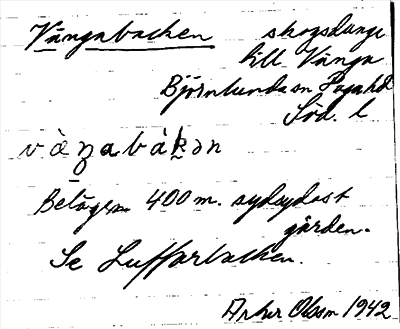 Vängabacken skogsdunge
till Vänga
Björnlunda sn Daga hd
Söd. l
vàŋabàkən
Belägen 400 m. sydsydost
gården.
Se Luffarbacken.
Artur Olsson 1942